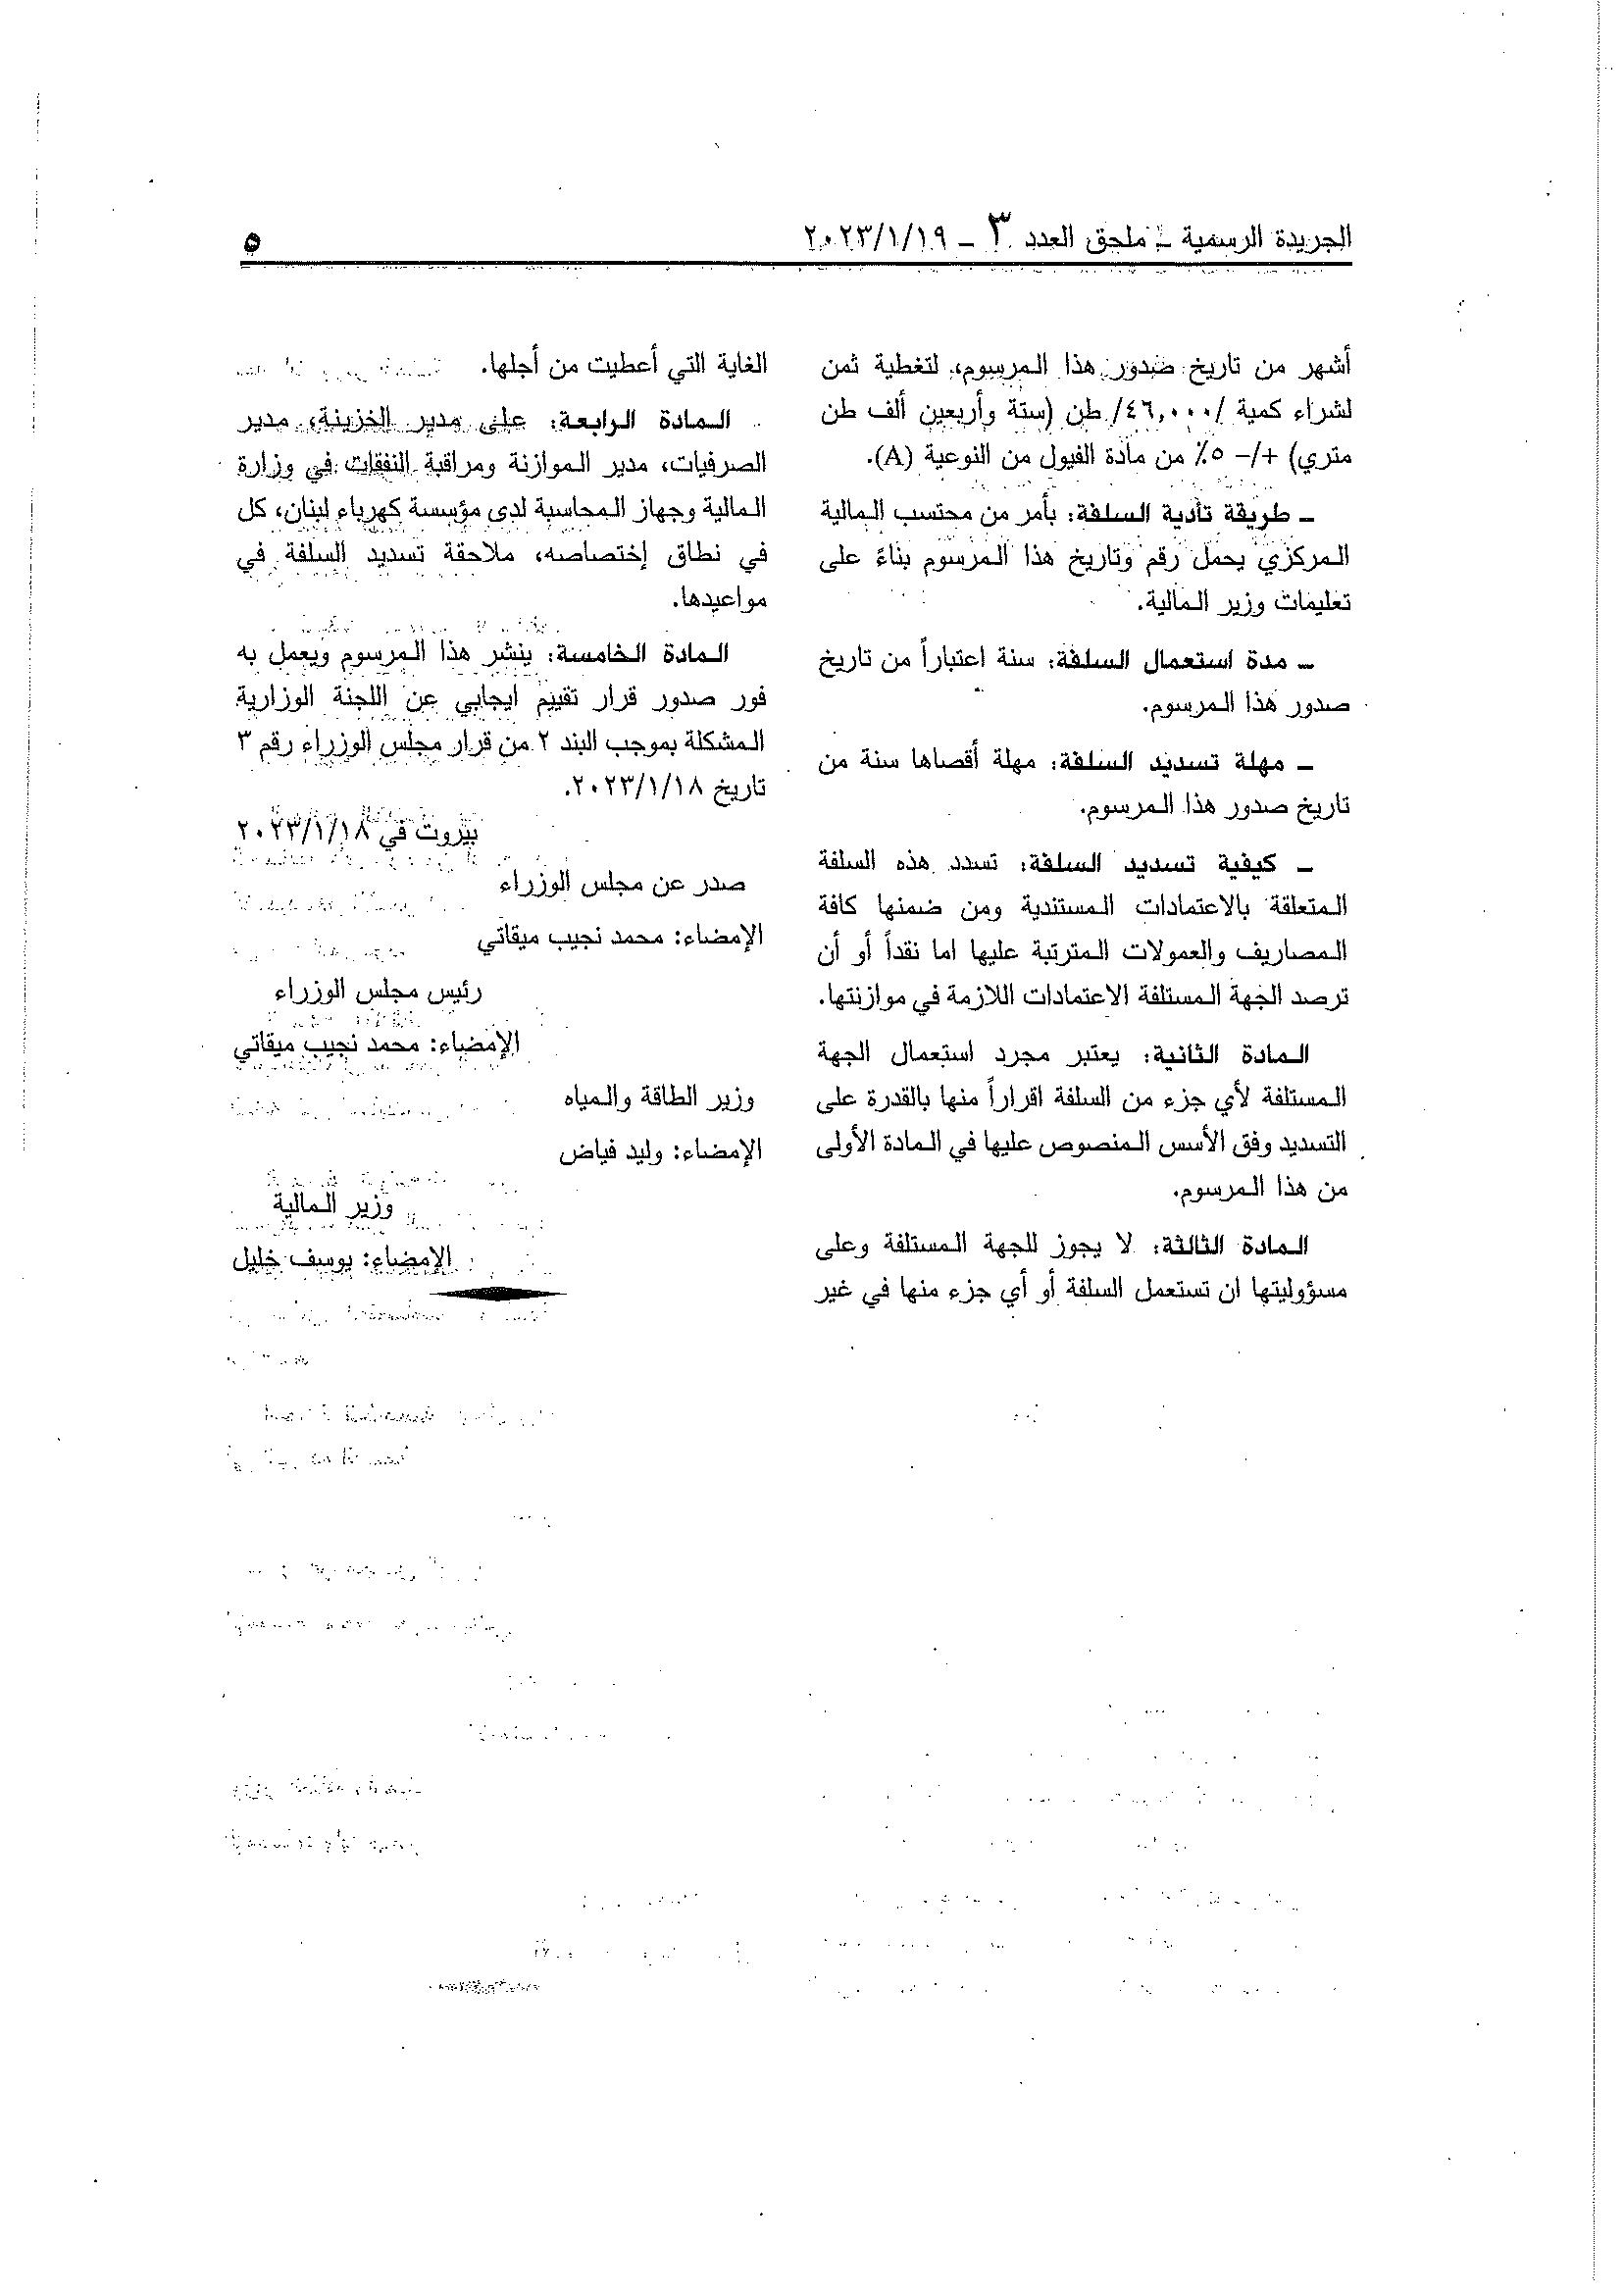 الجريدة الرسمية – ملحق العدد ٣ – ٢٠٢٣/١/١٩
٥
أشهر من تاريخ صدور هذا المرسوم، لتغطية ثمن
لشراء كمية /٤٦,٠٠٠/ طن (ستة وأربعين ألف طن
متري) +/- ٥٪ من مادة الفيول من النوعية (A).
– طريقة تأدية السلفة: بأمر من محتسب المالية
المركزي يحمل رقم وتاريخ هذا المرسوم بناءً على
تعليمات وزير المالية.
– مدة استعمال السلفة: سنة اعتباراً من تاريخ
صدور هذا المرسوم.
– مهلة تسديد السلفة: مهلة أقصاها سنة من
تاريخ صدور هذا المرسوم.
– كيفية تسديد السلفة: تسدد هذه السلفة
المتعلقة بالاعتمادات المستندية ومن ضمنها كافة
المصاريف والعمولات المترتبة عليها اما نقداً أو أن
ترصد الجهة المستلفة الاعتمادات اللازمة في موازنتها.
المادة الثانية: يعتبر مجرد استعمال الجهة
المستلفة لأي جزء من السلفة اقراراً منها بالقدرة على
التسديد وفق الأسس المنصوص عليها في المادة الأولى
من هذا المرسوم.
المادة الثالثة: لا يجوز للجهة المستلفة وعلى
مسؤوليتها ان تستعمل السلفة أو أي جزء منها في غير
الغاية التي أعطيت من أجلها.
المادة الرابعة: على مدير الخزينة، مدير
الصرفيات، مدير الموازنة ومراقبة النفقات في وزارة
المالية وجهاز المحاسبة لدى مؤسسة كهرباء لبنان، كل
في نطاق إختصاصه، ملاحقة تسديد السلفة في
مواعيدها.
المادة الخامسة: ينشر هذا المرسوم ويعمل به
فور صدور قرار تقييم ايجابي عن اللجنة الوزارية
المشكلة بموجب البند ٢ من قرار مجلس الوزراء رقم ٣
تاريخ ٢٠٢٣/١/١٨.
بيروت في ٢٠٢٣/١/١٨
صدر عن مجلس الوزراء
الإمضاء: محمد نجيب ميقاتي
رئيس مجلس الوزراء
الإمضاء: محمد نجيب ميقاتي
وزير الطاقة والمياه
الإمضاء: وليد فياض
وزير المالية
الإمضاء: يوسف خليل